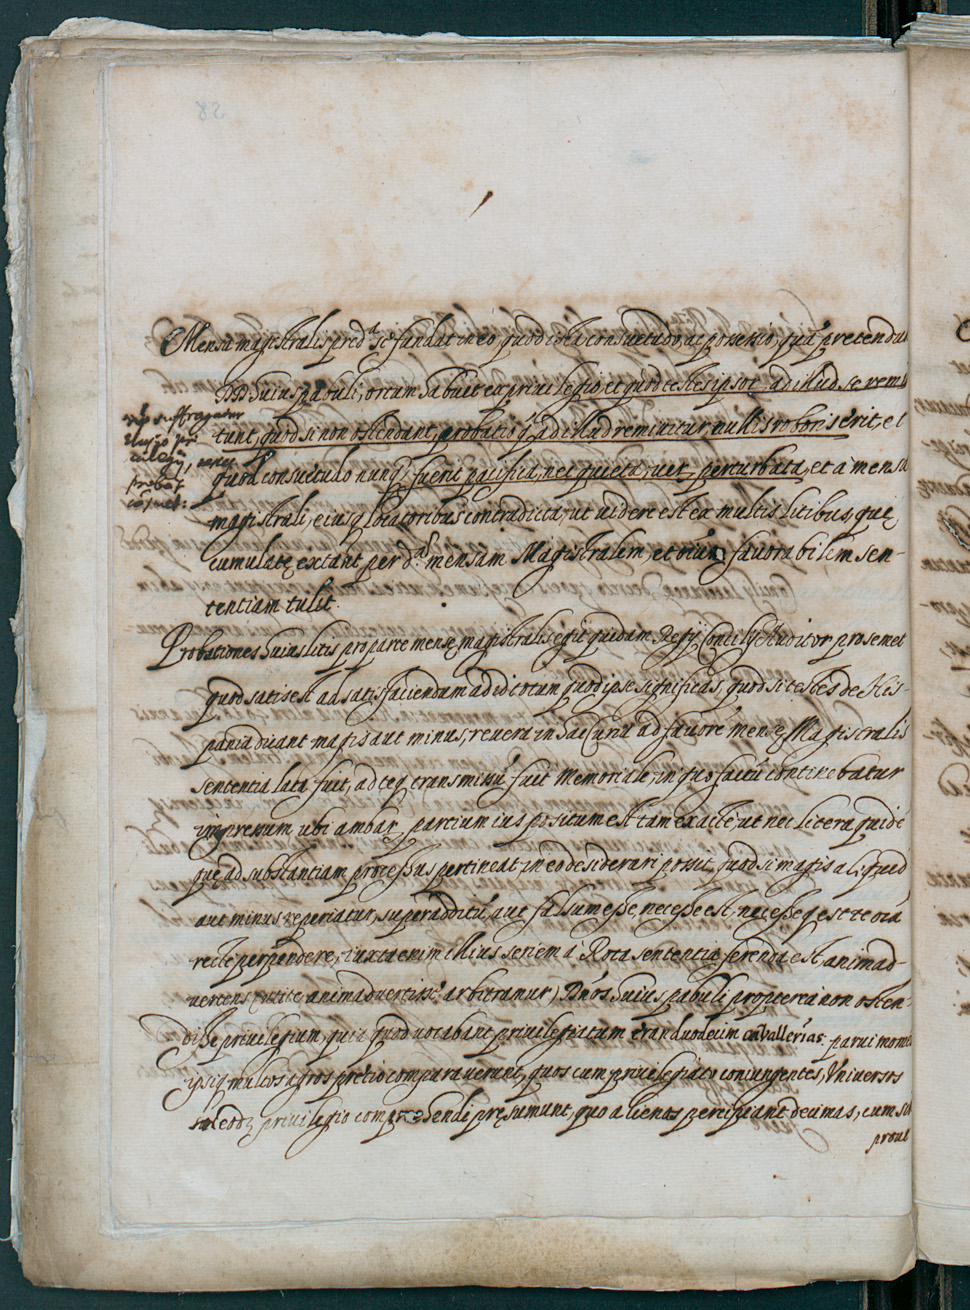 Mensa magistralis pred.ᵃ se fundat in eo, quod ista consuetudo, ac possessio, quā pretendunt
DD. huius pabuli, ortum habuit ex privilegio, et quod testes ipsoȝ ad illud se remit-
tunt, quod si non ostendant, probatio q̨ ad illud remittitur nullis roboris erit, et
quod consuetudo nunq̃ fuerit pacifica, nec quieta, uerū perturbata, et a mensa
magistrali, eiusq̨ locatoribus contradicta, ut uidere est ex multis litibus, quę
cumulatę extant per d.ᵃᵐ mensam Magistralem, et oīuȝ favorabilem sen-
tentiam tulit.
non suffragatur
elusio pri
vilegij,
probat
Probationes huius litis pro parte mensę magistralis egit quidam Regij Concilij Auditor pro semet
quod satis est ad satisfaciendum ad id totum quod ipse significas, quod si testes de His-
pania dicant magis aut minus, revera in hac curia ad fauorē mensę Magistralis
sententia lata fuit, ad teq̨ transmissū fuit Memoriale, in quo factū continebatur
impressum ubi ambaȝ partium ius positum est tam exacte, ut nec litera quidē
quę ad substantiam processus pertineat in eo desiderari possit, quod si magis aliquid
aut minus reperiatur, superadditū, aut falsum esse, necesse est, necesseq̨ est te oīa
recte perpendere, iuxta enim illius seriem à Rota sententia ferenda est, animad-
uertens (utite animadvertisse arbitramur) Dños huius pabuli propterea non osten-
disse privilegium, quia quod vocabant privilegiatum erant duodecim cavallerias parui momēti
ipsiq̨ multos agros pretio comparaverunt, quos cum privilegiato coniungentes, Vniversos
sub eodȝ privilegio comprehendi pręsumunt, quo alienas percipiant decimas, cum sit
prout